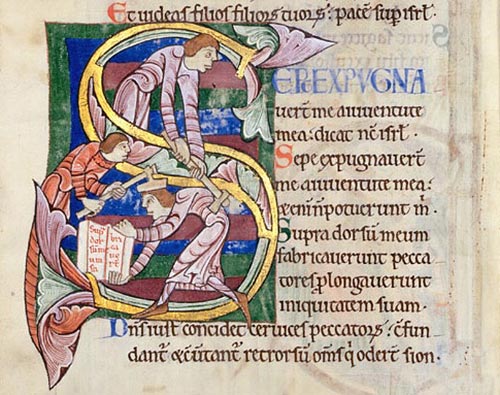 Et uideas filios filiorū tuorū: pacē sup isrl̄.
SEPE EXPVGNA
uert̄ me a iuuentute
mea: dicat nc̄ isrl̄.
Sepe expugnauert̄
me a iuuentute mea:
&eni n̄ potuerunt m̄.
Supra dorsū meum
fabricauerunt pecca
tores: plongauerunt
iniquitatem suam.
Dn̄s iust' concidet ceruices peccatorū: c̄fun
dant' &c̄uertant' retrorsū om̄s q' odert̄ sion.
Sup
dorsū me
um
fa
bri
ca
uer
t̄